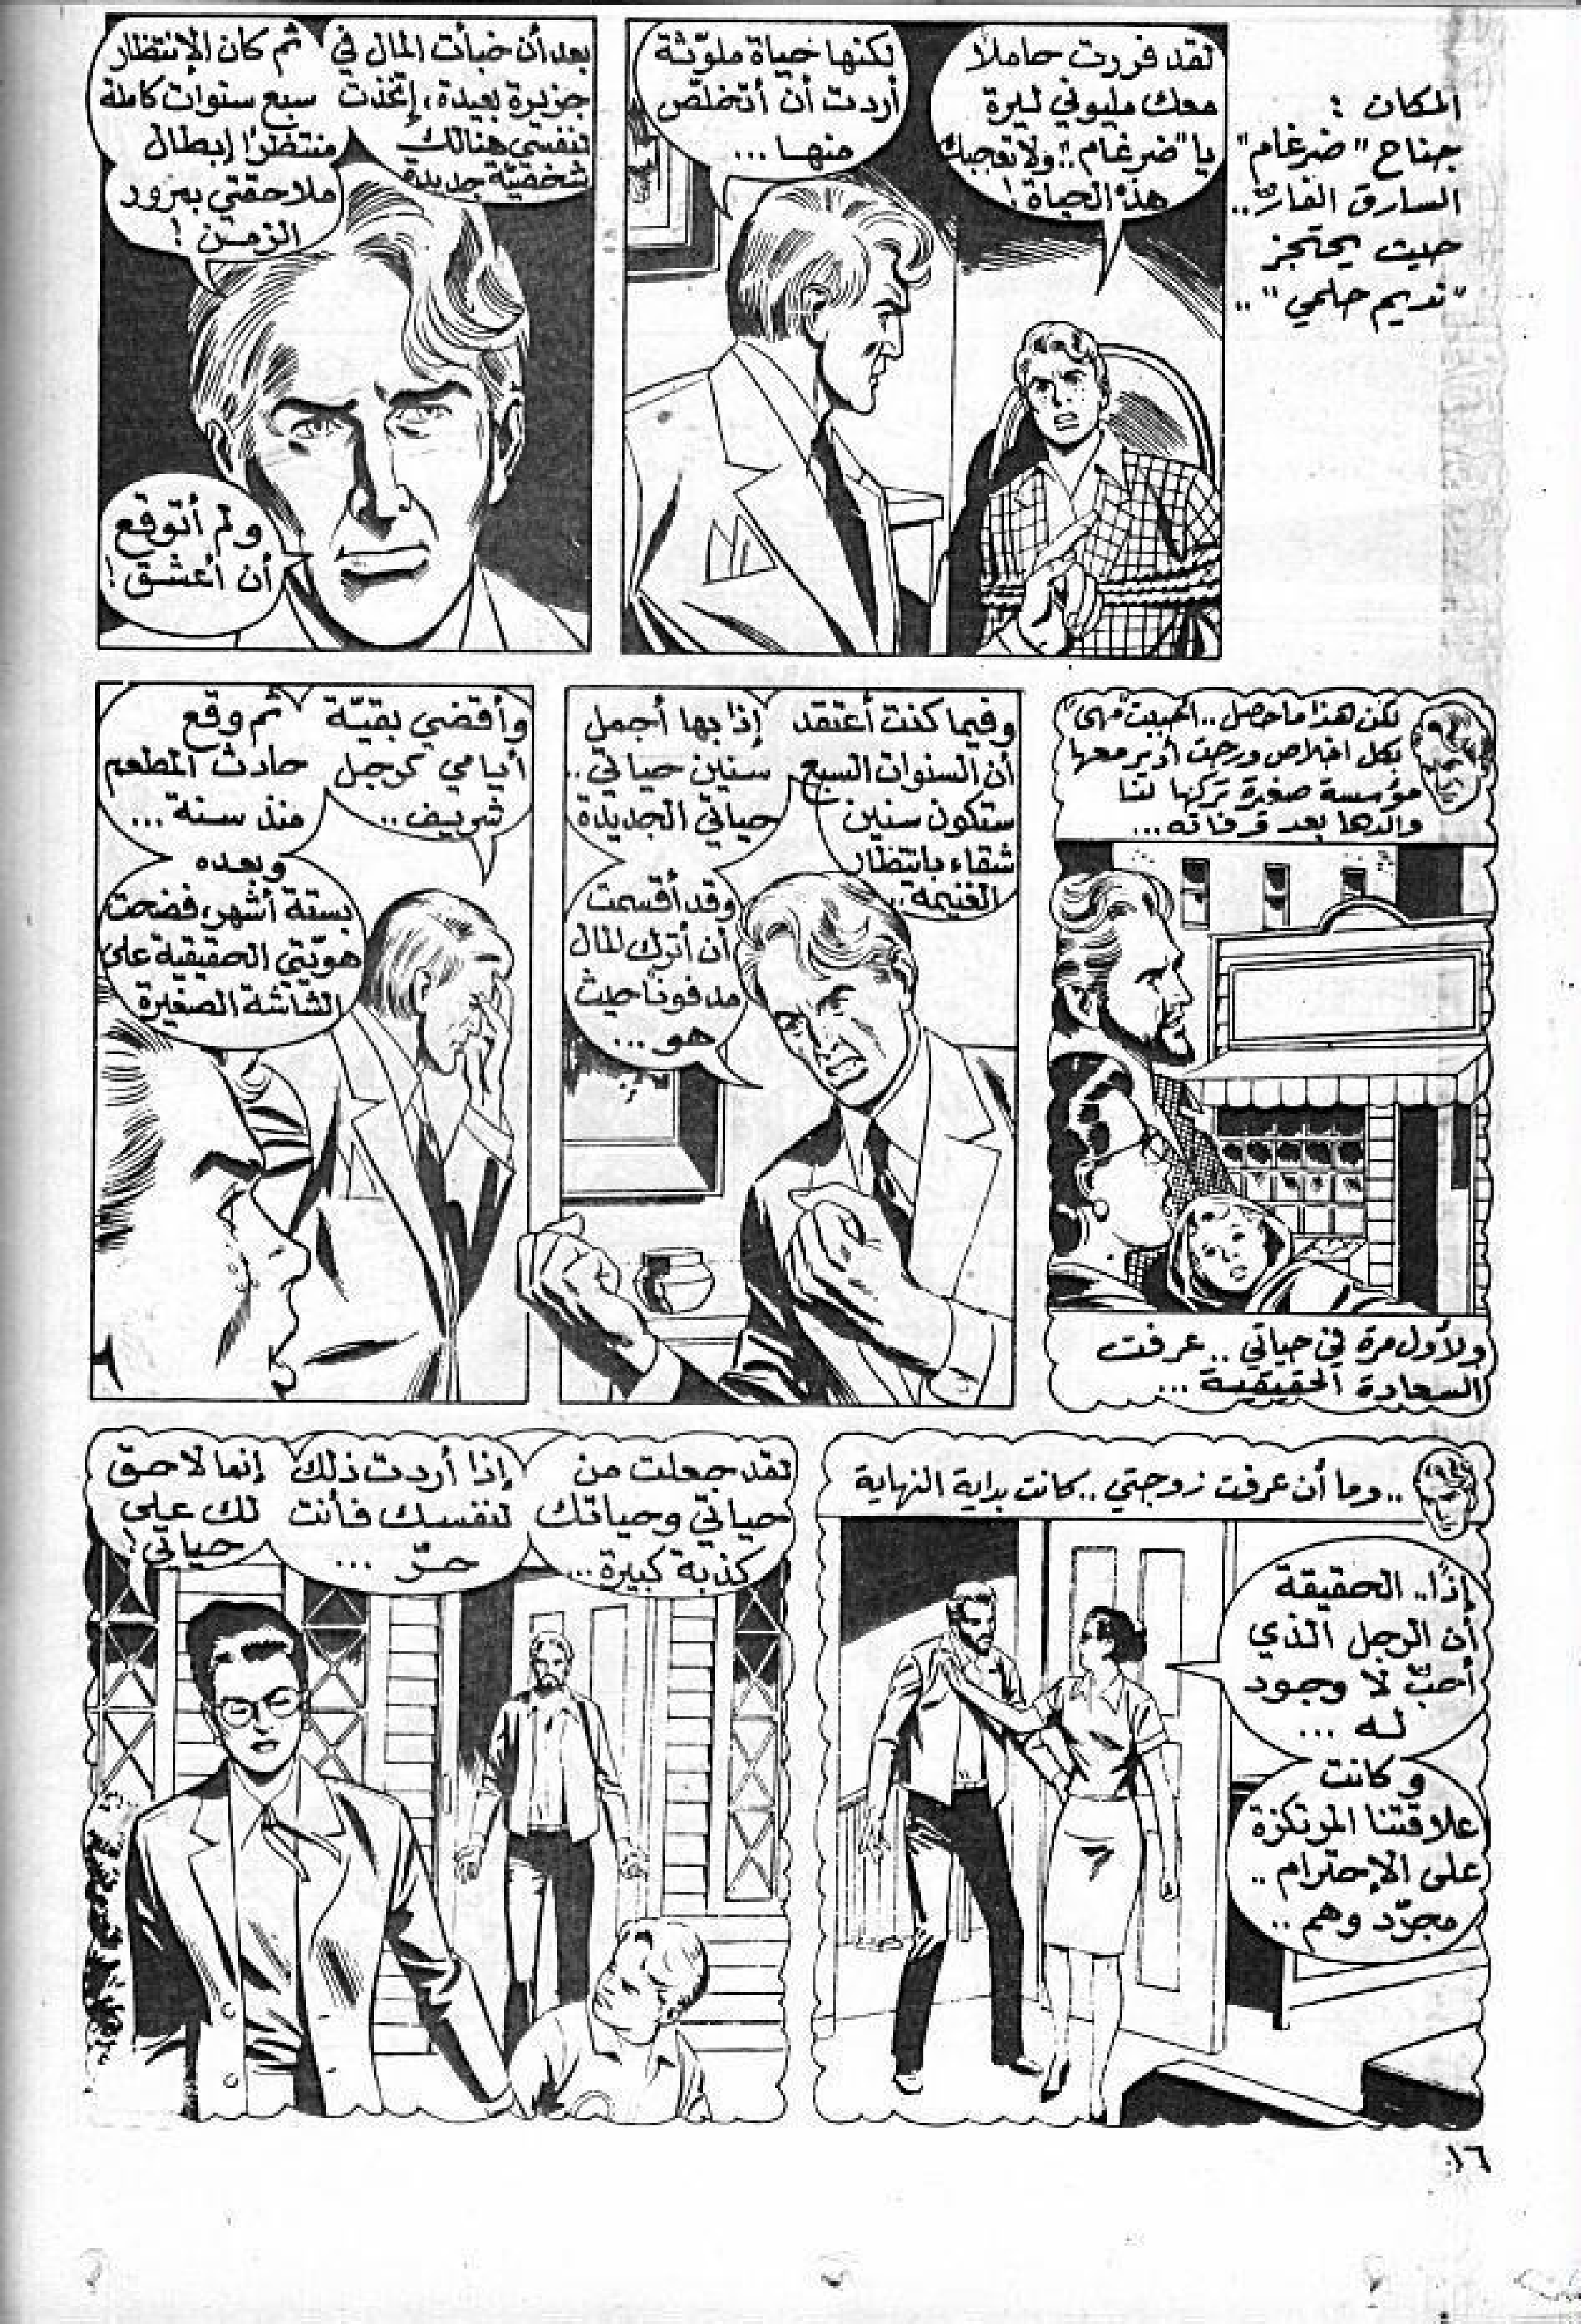 المكان :
جناح "ضرغام"
السارق الفارّ..
حيث يحتجز
"نديم حلمي"..
لقد فررت حاملاً
معك مليوني ليرة
يا "ضرغام".. ولا تعجبك
هذه الحياة!
لكنها حياة ملوّثة
أردت أن أتخلص
منها ...
بعد أن خبأت المال في
جزيرة بعيدة، إتخذت
لنفسي هنالك
شخصيّة جديدة
ثم كان الإنتظار
سبع سنوات كاملة
منتظرًا إبطال
ملاحقتي بمرور
الزمن !
ولم أتوقع
أن أعشق!
لكن هذا ما حصل.. احببت "مهى"
بكل اخلاص ورحت أدير معها
مؤسسة صغيرة تركها لنا
والدها بعد وفاته...
ولأول مرة في حياتي .. عرفت
السعادة الحقيقية ...
وفيما كنت أعتقد
أن السنوات السبع
ستكون سنين
شقاء بانتظار
الغنيمة..
إذا بها أجمل
سنين حياتي ..
حياتي الجديدة
وقد أقسمت
أن أترك المال
مدفونًا حيث
هو ...
وأقضي بقيّة
أيامي كرجل
شريف ..
ثم وقع
حادث المطعم
منذ سنة ...
وبعده
بستة أشهر، فضحت
هويّتي الحقيقية على
الشاشة الصغيرة
.. وما أن عرفت زوجتي .. كانت بداية النهاية
إذًا.. الحقيقة
أن الرجل الذي
أحبّ لا وجود
له ...
وكانت
علاقتنا المرتكزة
على الإحترام ..
مجرّد وهم ..
لقد جعلت من
حياتي وحياتك
كذبة كبيرة ...
إذا أردت ذلك
لنفسك فأنت
حرّ ...
إنما لا حق
لك على
حياتي!
١٦